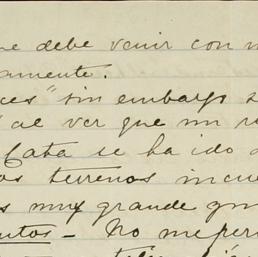 ne debe venir con m
amente.
ces" sin embargo s
" al ver que un r
Cata se ha ido a
os terrenos incu
s muy grande qu
ntos - No me per